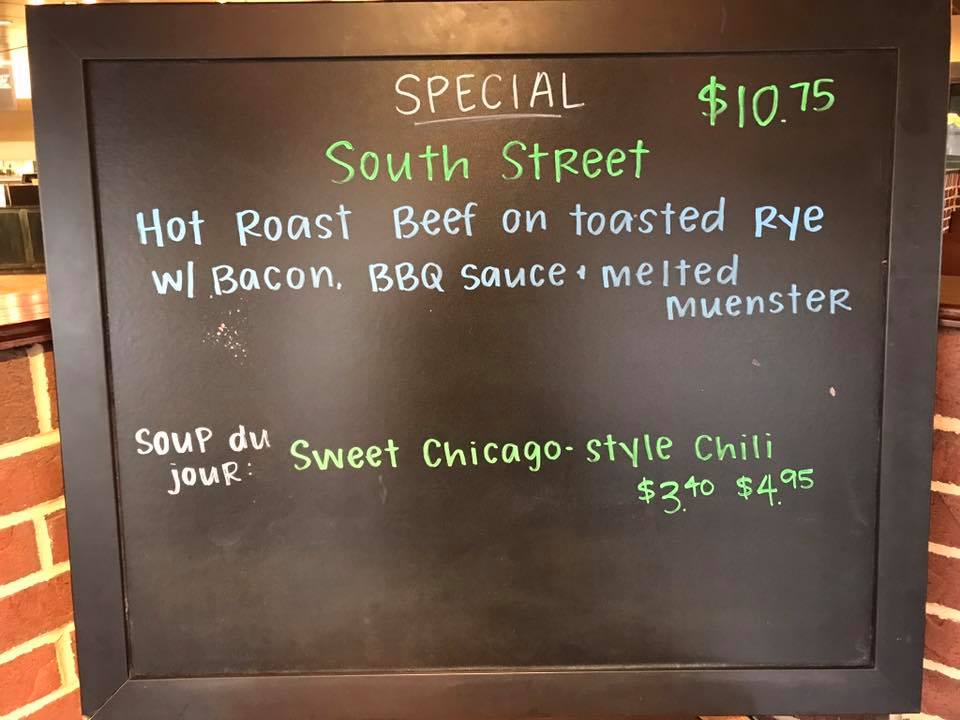 SPECIAL $10.75
South Street
Hot Roast Beef on toasted Rye
w/ Bacon, BBQ sauce + melted
muenster
Soup du
jour:
Sweet Chicago-style Chili
$3.40 $4.95